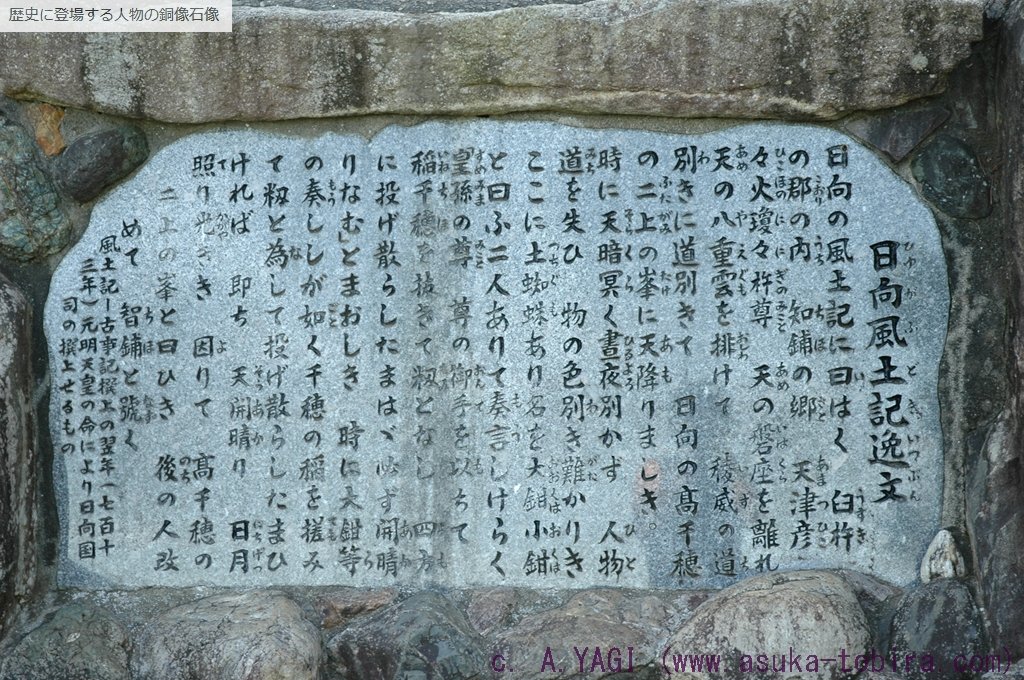 歴史に登場する人物の銅像石像
日向風土記逸文
日向の風土記に曰はく 臼杵
の郡の内 知鋪の郷 天津彦
々火瓊々杵尊 天の磐座を離れ
天の八重雲を排けて 稜威の道
別きに道別きて 日向の髙千穂
の二上の峯に天降りましき。
時に天暗冥く晝夜別かず 人物
道を失ひ 物の色別き難かりき
ここに土蜘蛛あり名を大鉗小鉗
と曰ふ二人ありて奏言しけらく
皇孫の尊 尊の御手を以ちて
稲千穂を抜きて籾となし 四方
に投げ散らしたまはゞ必ず開晴
りなむとまおしき 時に大鉗等
の奏ししが如く千穂の稲を搓み
て籾と為して投げ散らしたまひ
ければ 即ち 天開晴り 日月
照り光きき 因りて 髙千穂の
二上の峯と曰ひき 後の人改
めて 智鋪と號く
風土記ー古事記撰上の翌年一七百十
三年)元明天皇の命により日向国
司の撰上せるもの
c. A.YAGI (www.asuka-tobira.com)